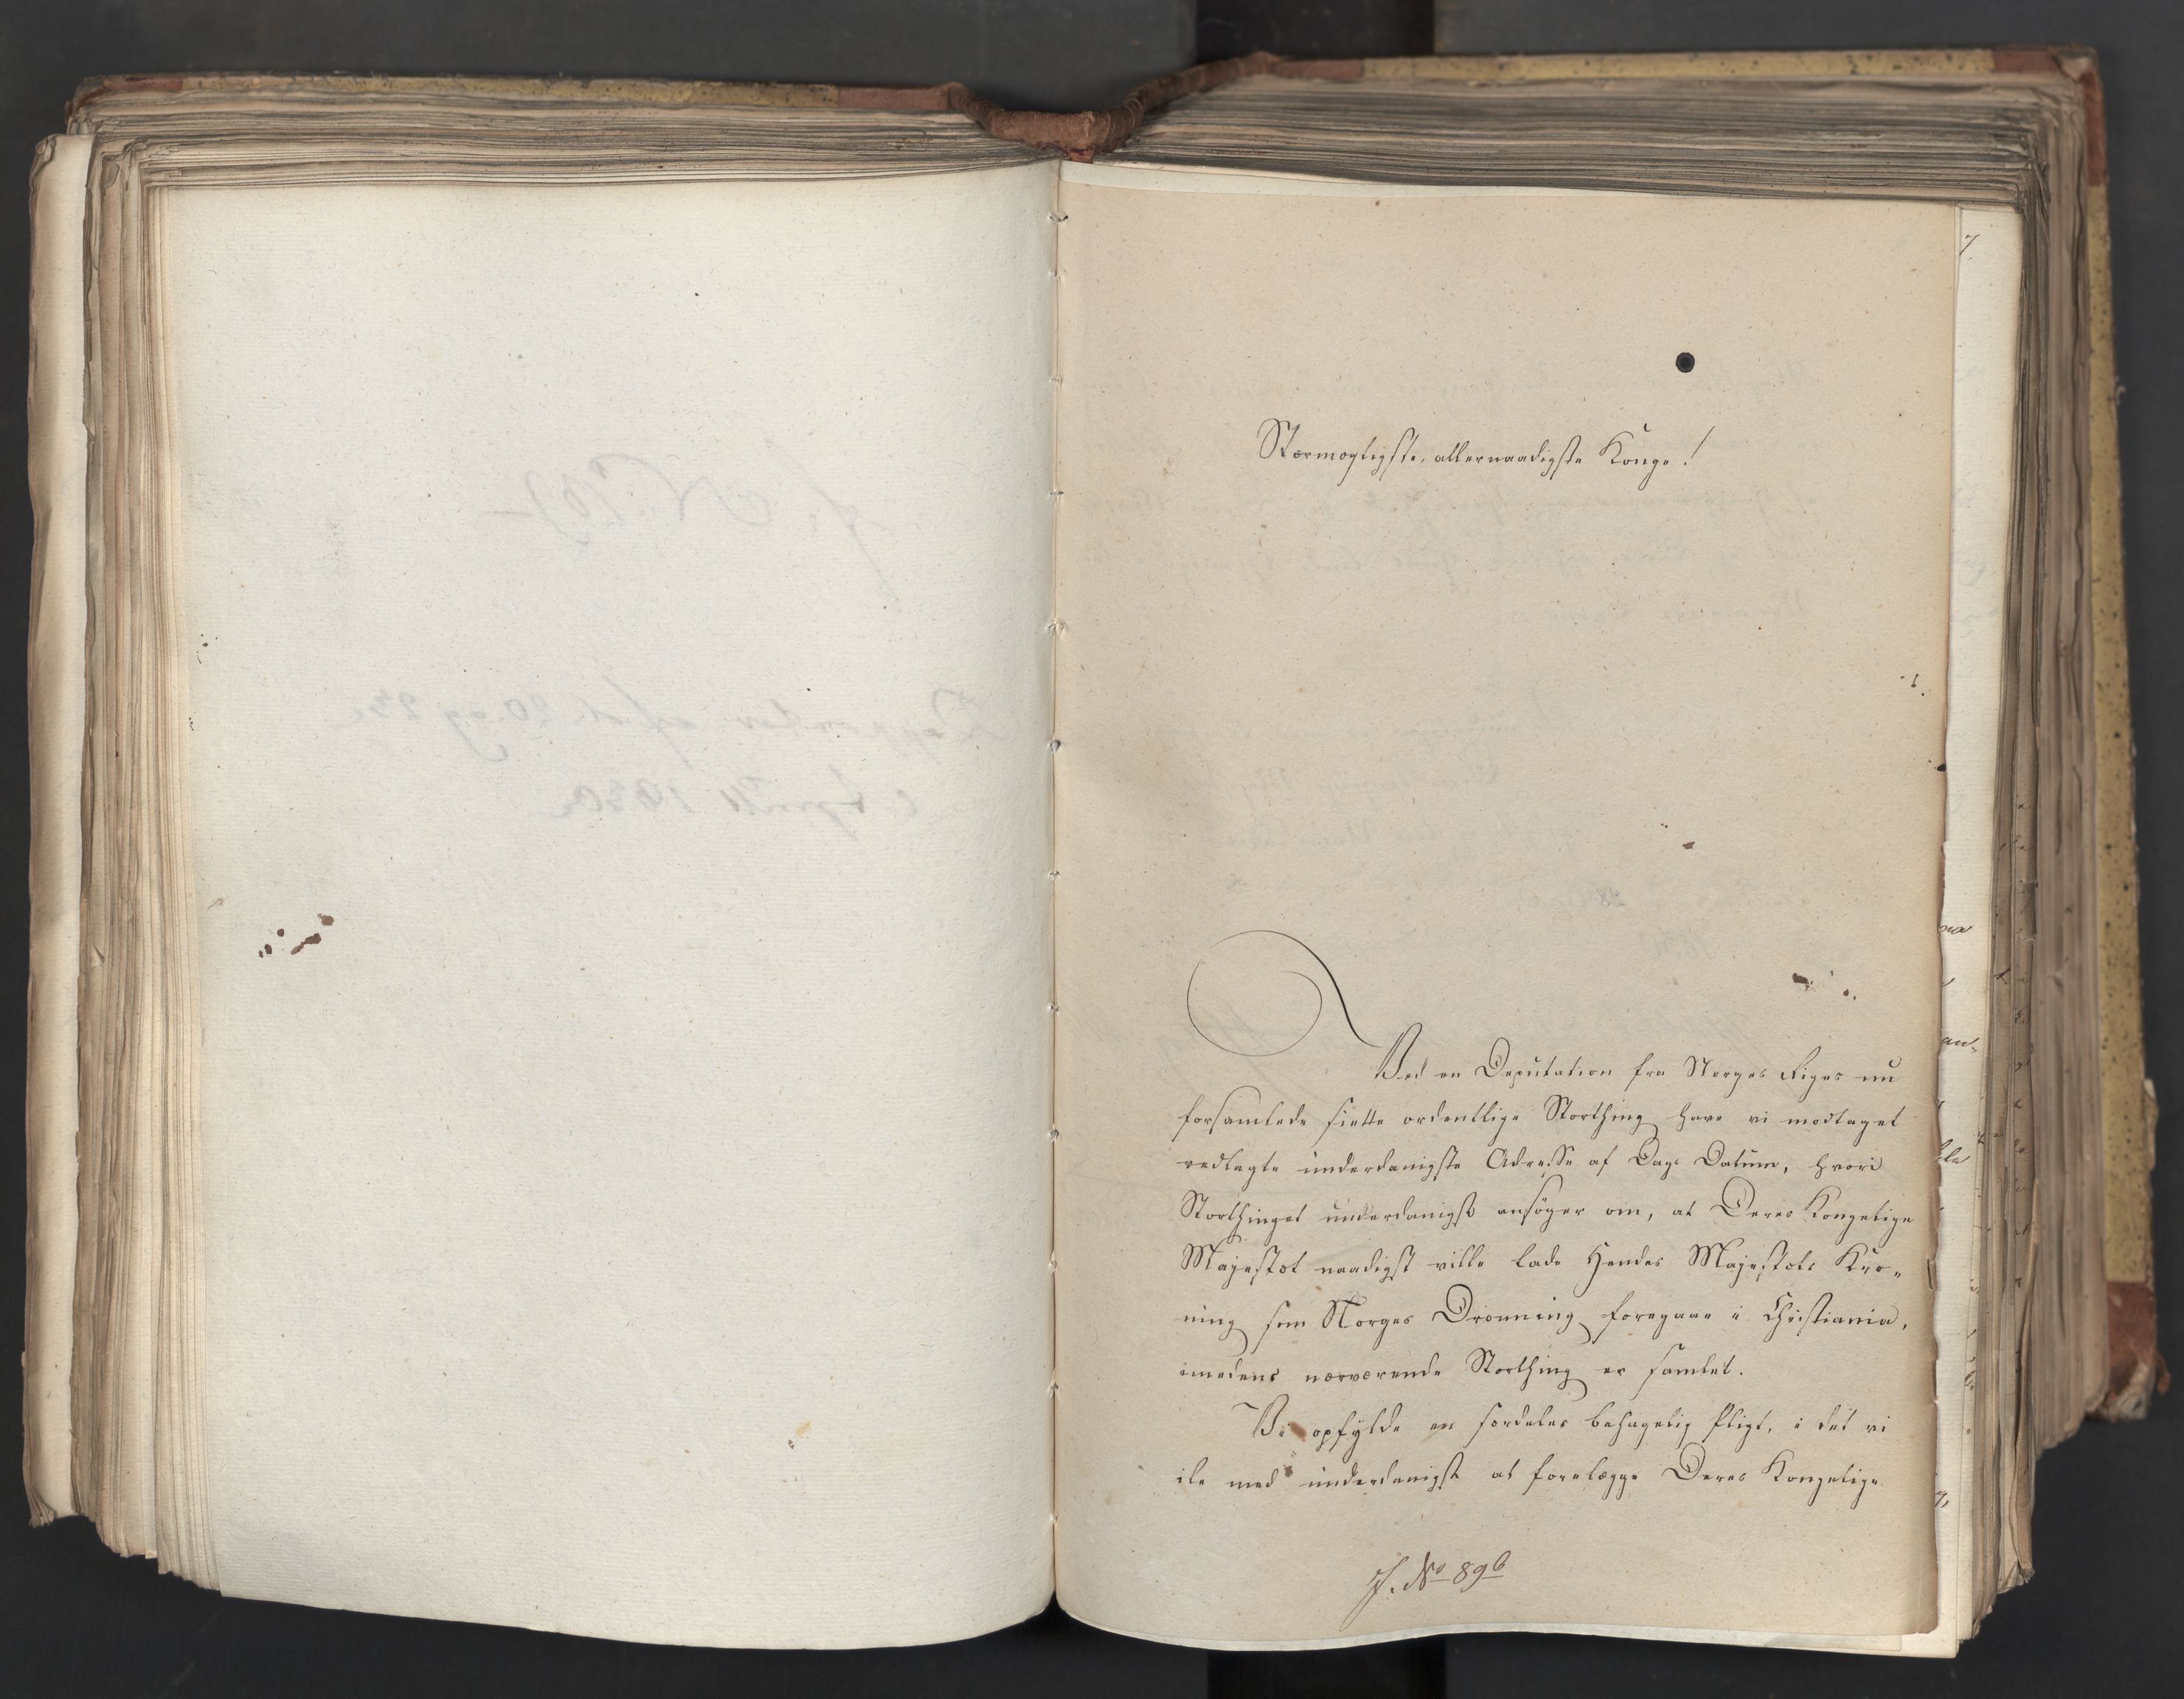 Stormægtigste, allernaadigste Konge!
Ved en Deputation fra Norges Riges nu
forsamlede siette ordentlige Storthing have vi modtaget
vedlagte underdanigste Adresse af Dags Datum, hvori
Storthinget underdanigst ansöger om, at Deres Kongelige
Majestæt naadigst ville lade Hendes Majestæts Kro„
ning som Norges Dronning foregaae i Christiania,
imedens nærværende Storthing er samlet.
Vi opfylde en særdeles behagelig Pligt, i det vi
ile med underdanigst at forelægge Deres Kongelige
J. No 89b